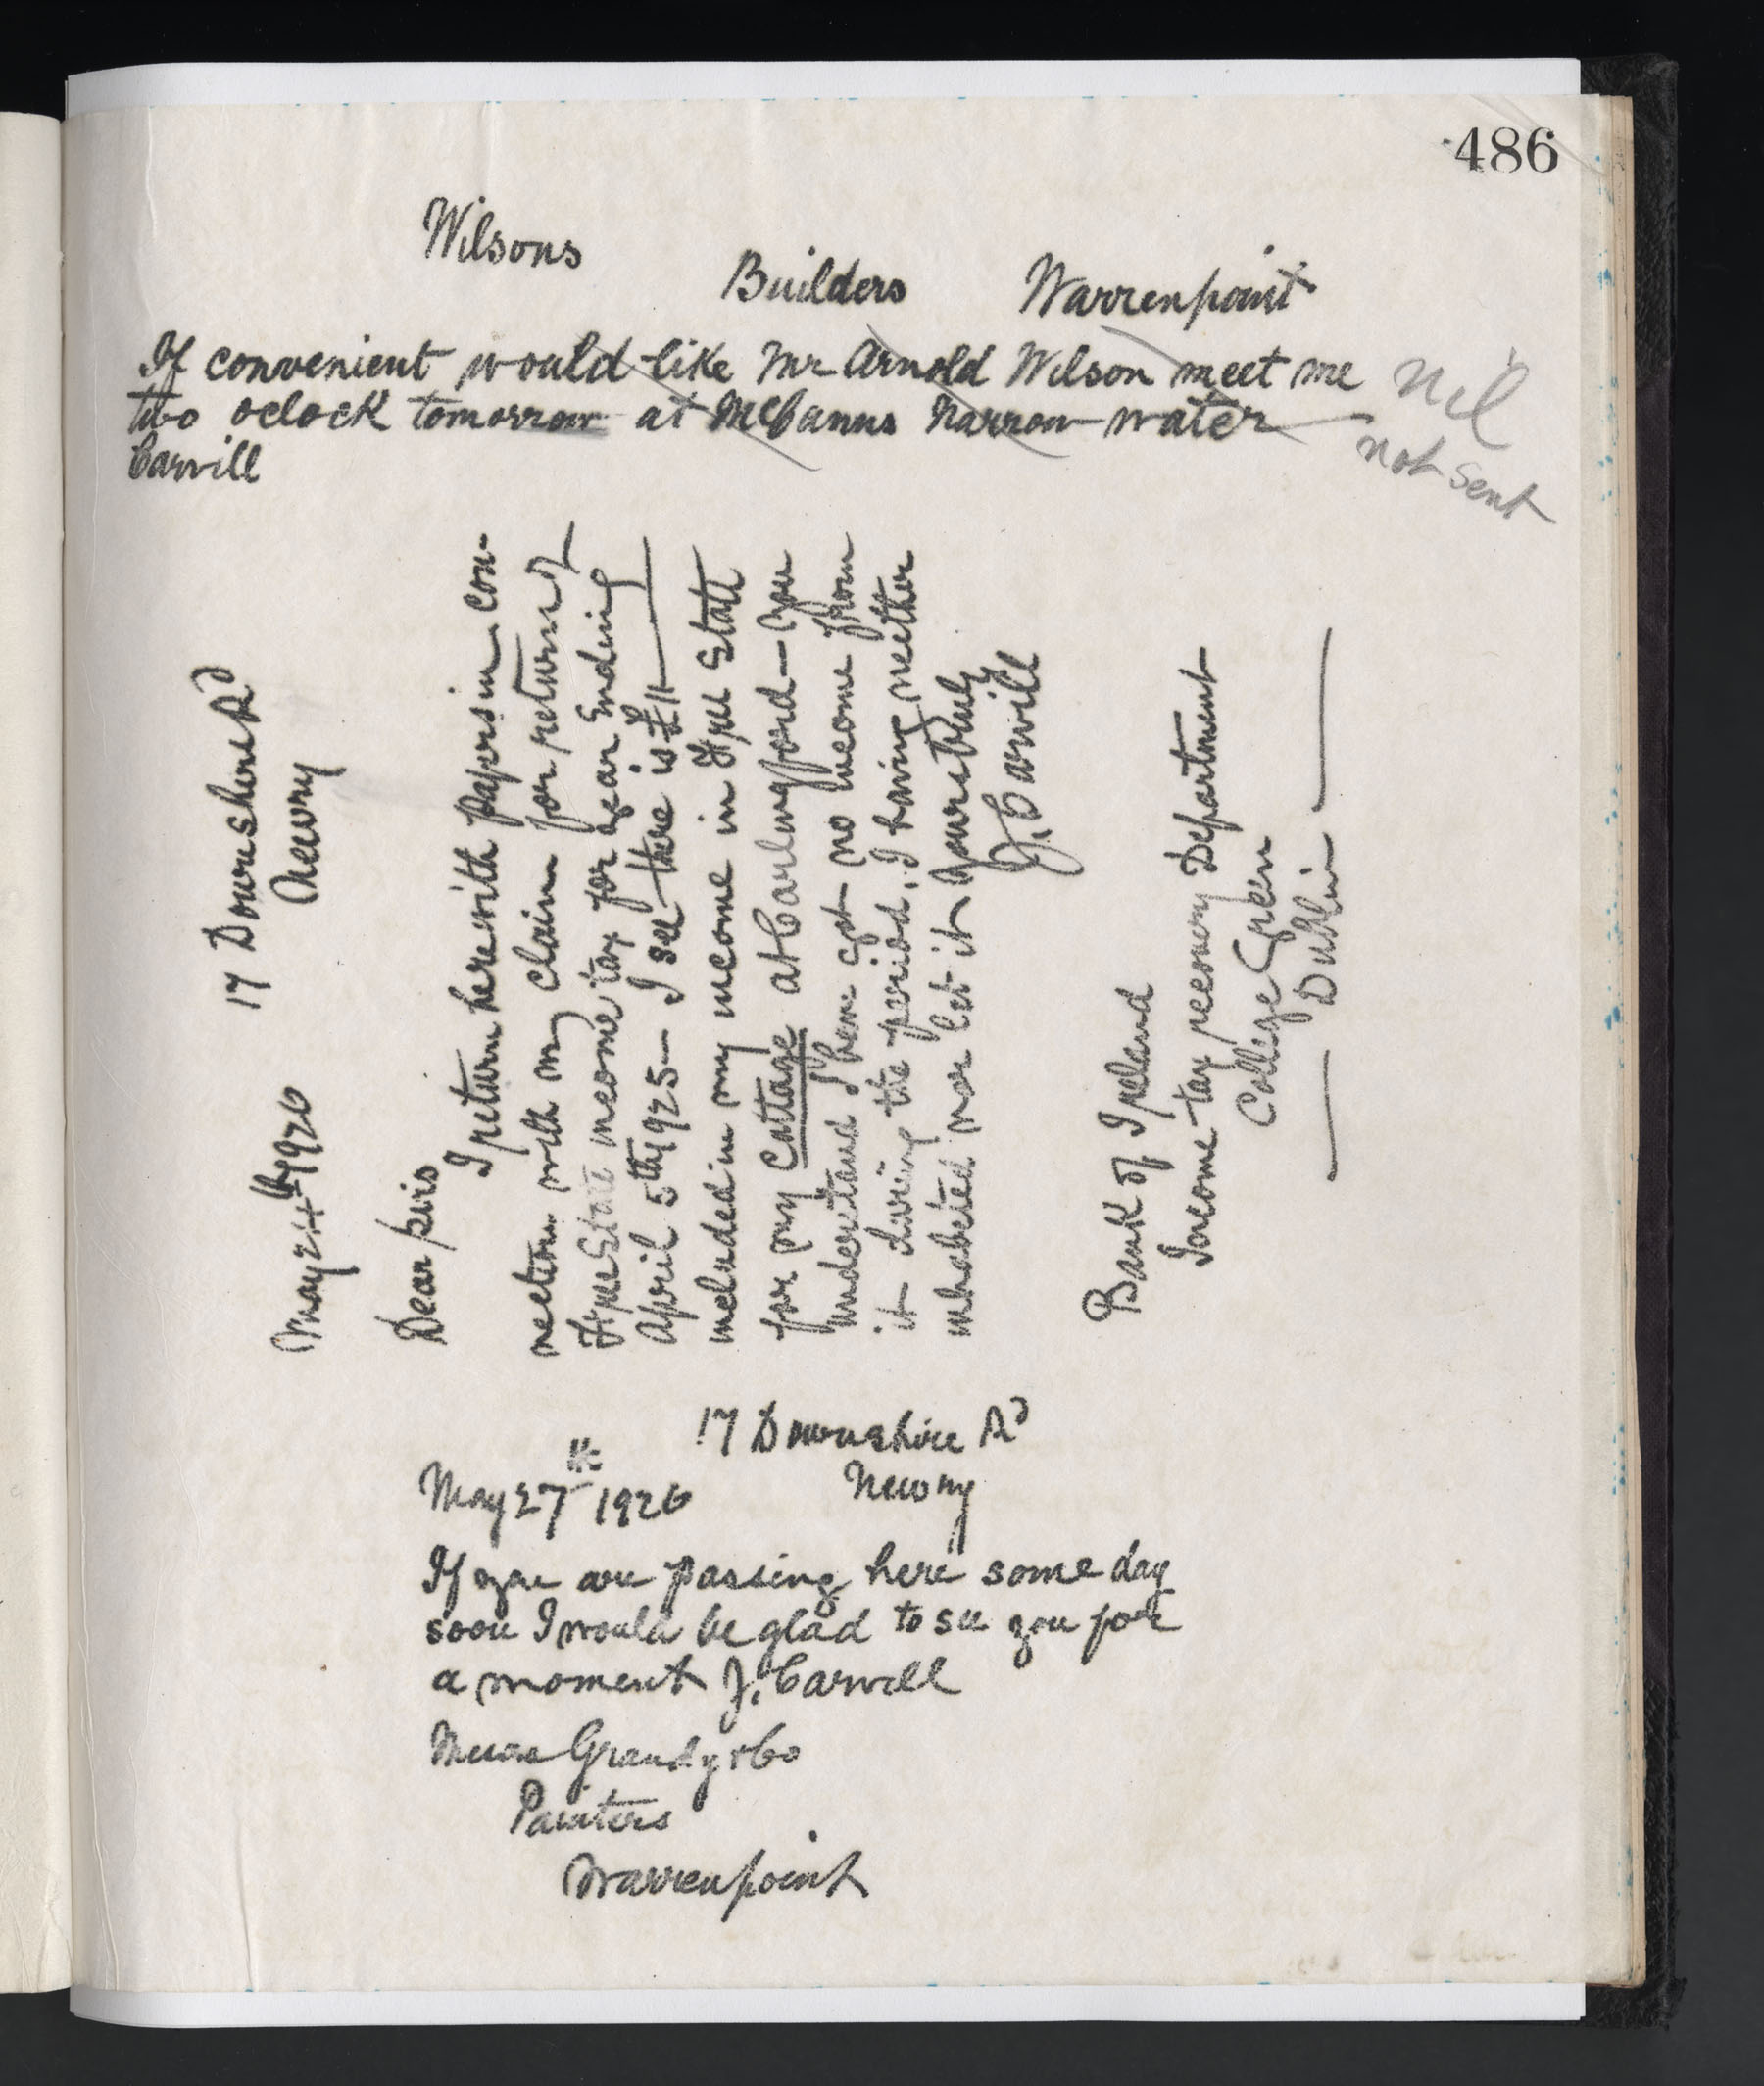 486
Wilsons
Builders Warrenpoint
If convenient would like Mr Arnold Wilson meet me
two oclock tomorrow at McCanns Narrow water
Carvill
Nil
not sent
17 Downshire Rd
Newry
May 24th 1926
Dear Sirs
I return herewith papers in con-
nection with my claim for return of
Free State income tax for year Ending
April 5th 1925 — I see there is £11 —
included in my income in Free State
for my Cottage at Carlingford — You
understand I have got no income from
it during the period, I having neither
inhabited nor let it Yours truly
J. Carvill
Bank of Ireland
Income tax recovery Department
College Green
— Dublin —
17 Downshire Rd
May 27th 1926 Newry
If you are passing here some day
soon I would be glad to see you for
a moment J. Carvill
Messrs Grandy & Co
Painters
Warrenpoint